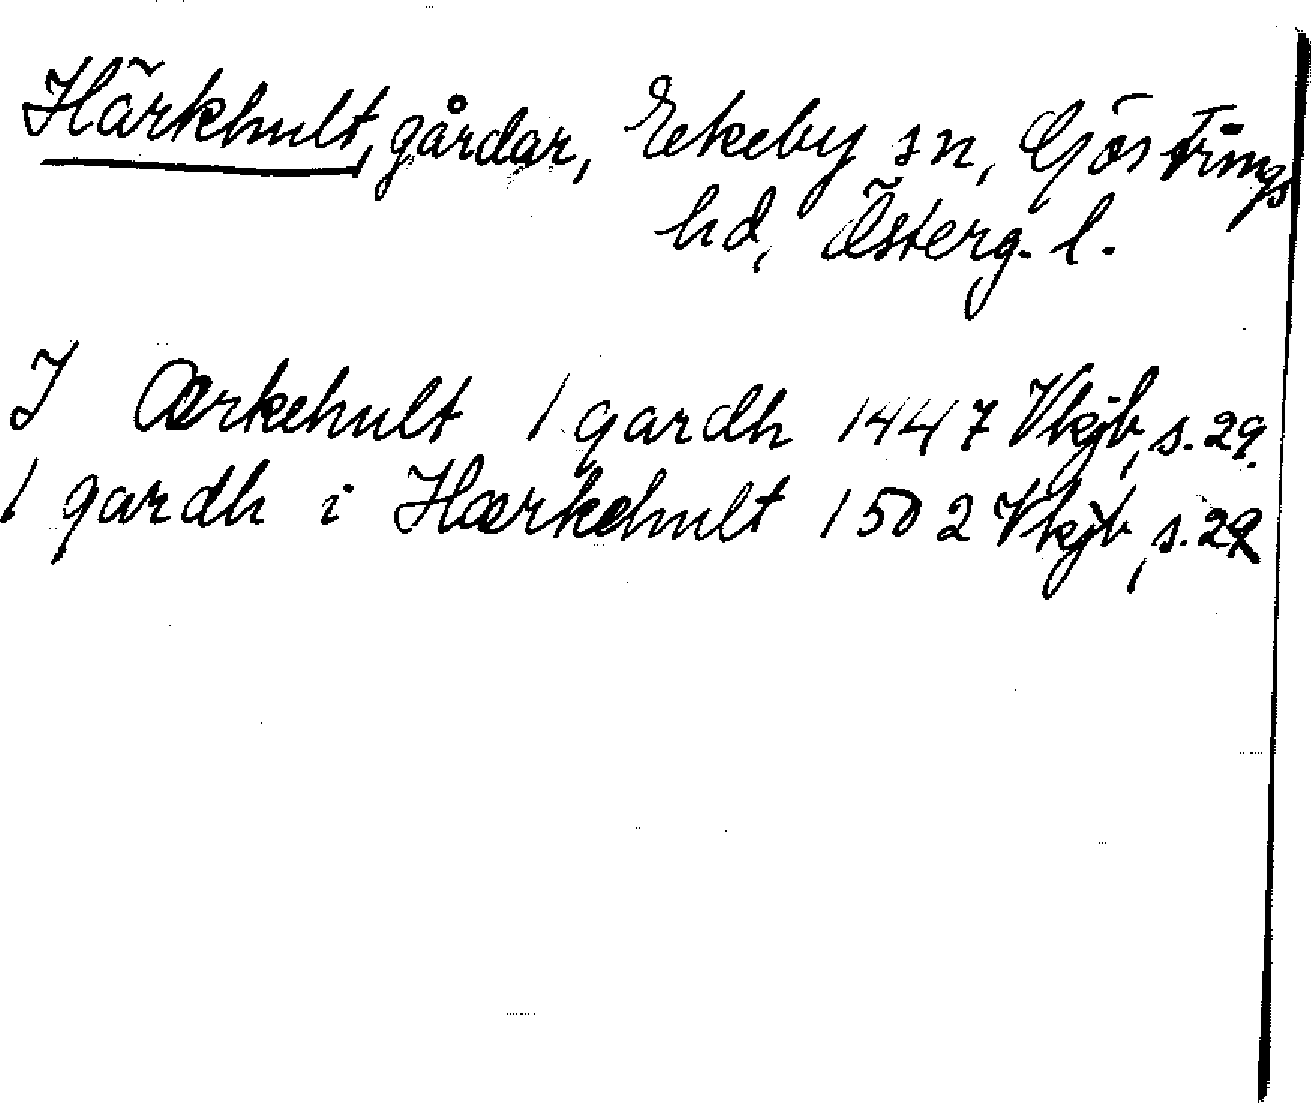 Härkhult, gårdar, Ekeby sn, Göstrings
hd, Österg. l.
I Ærkehult 1 gardh 1447 Vkjb, s. 29.
1 gardh i Hærkehult 1502 Vkjb, s. 29